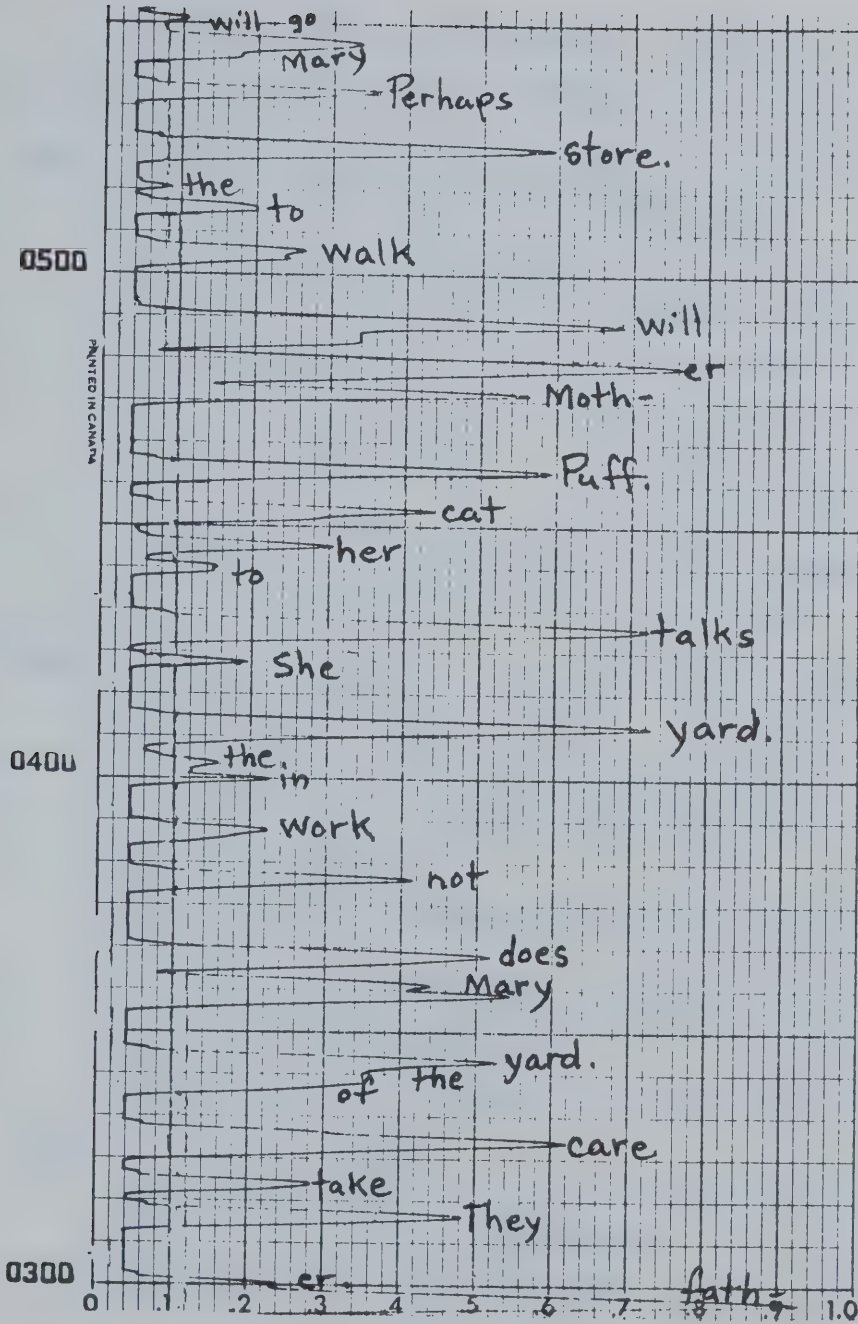 will go
Mary
Perhaps
store.
the
to
0500
walk
will
PRINTED IN CANADA
er
Moth-
Puff.
cat
her
to
talks
She
yard.
0400
the.
in
work
not
does
Mary
yard.
of the
care
take
They
0300
er.
fath-
0 .1 .2 .3 .4 .5 .6 .7 .8 .9 1.0